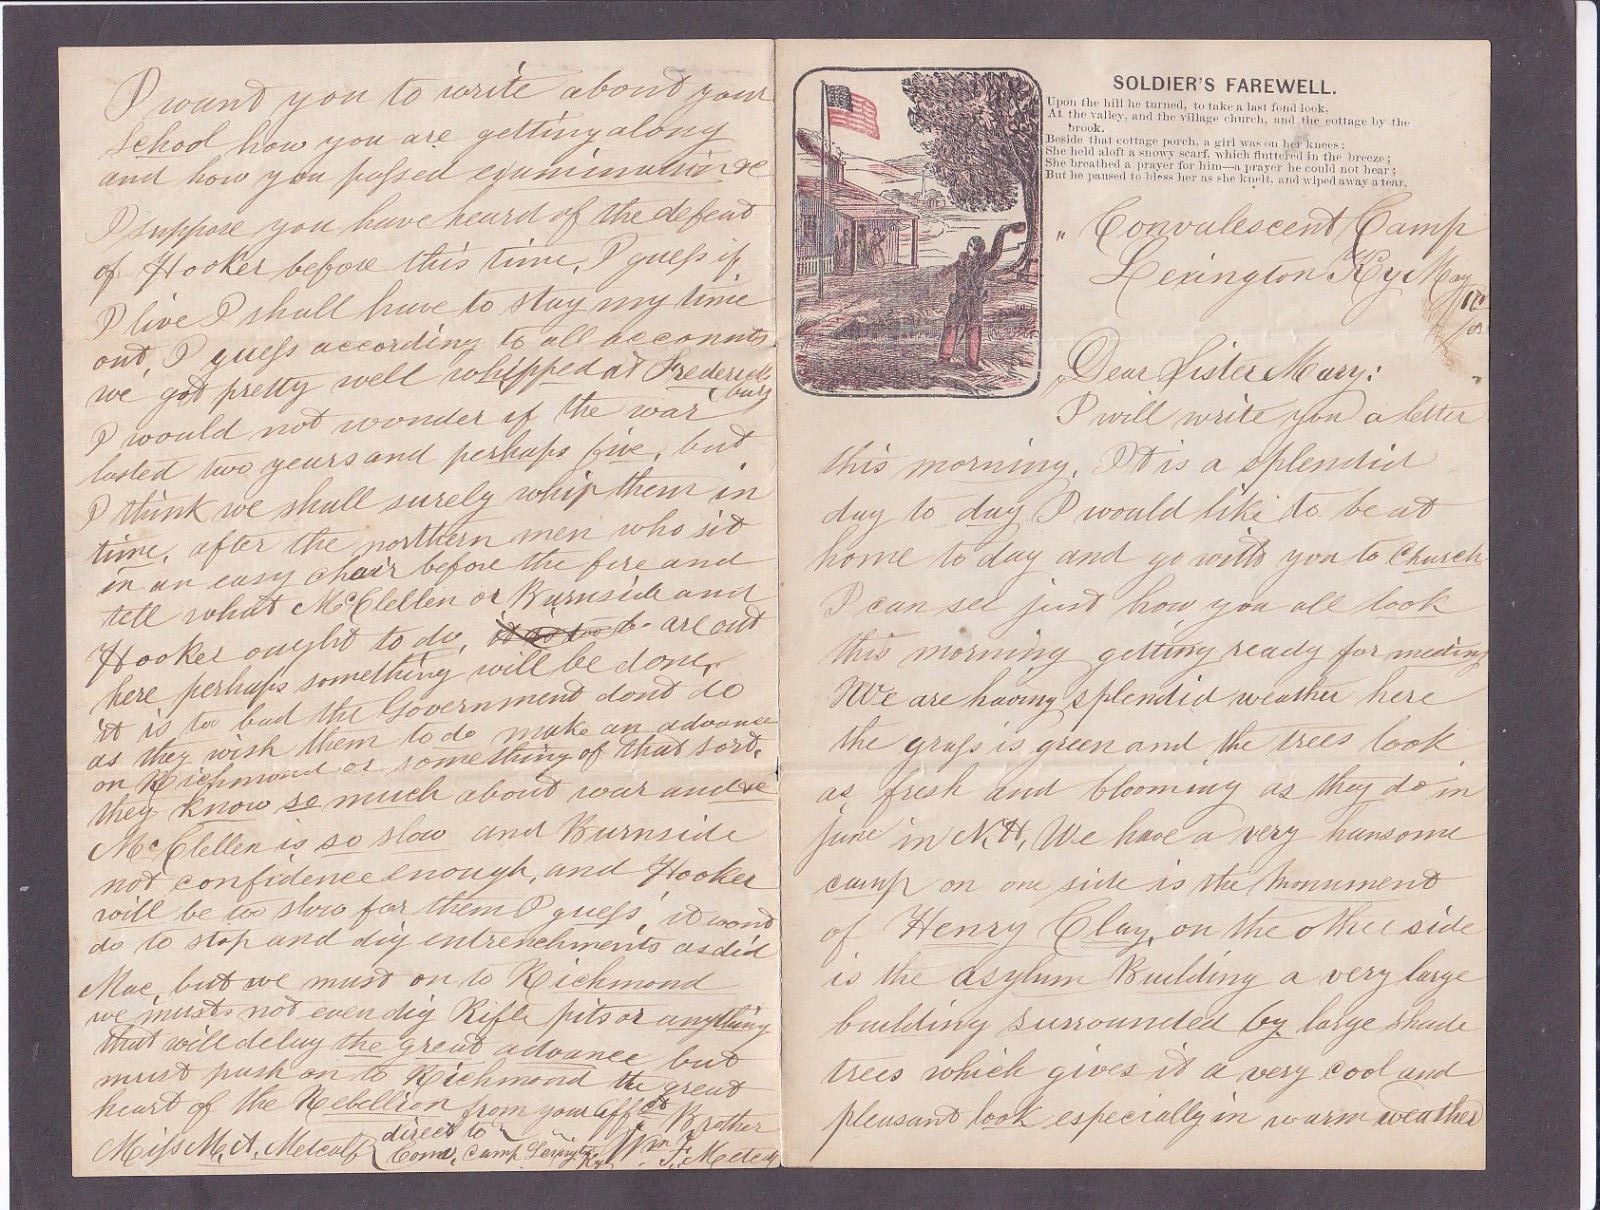 SOLDIER'S FAREWELL.
Upon the hill he turned, to take a last fond look,
At the valley, and the village church, and the cottage by the
brook.
Beside that cottage porch, a girl was on her knees;
She held aloft a snowy scarf, which fluttered in the breeze;
She breathed a prayer for him—a prayer he could not hear;
But he paused to bless her as she knelt, and wiped away a tear.
" Convalescent Camp
Lexington Ky May
Dear Sister Mary:
I will write you a letter
this morning. It is a splendid
day to day I would like to be at
home to day and go with you to Church
I can see just how you all look
this morning getting ready for meeting
We are having splendid weather here
the grass is green and the trees look
as fresh and blooming as they do in
june in N.H. We have a very hansome
camp on one side is the Monument
of Henry Clay, on the other side
is the asylum Building a very large
building surrounded by large shade
trees which gives it a very cool and
pleasant look especially in warm weather
I want you to write about your
School how you are getting along
and how you passed examination &c
I suppose you have heard of the defeat
of Hooker before this time, I guess if
I live I shall have to stay my time
out, I guess according to all accounts
we got pretty well whipped at Fredericksburg
I would not wonder if the war
lasted two years and perhaps five, but
I think we shall surely whip them in
time, after the northern men who sit
in an easy chair before the fire and
tell what McClellen or Burnside and
Hooker ought to do, are out
here perhaps something will be done,
it is too bad the Government dont do
as they wish them to do make an advance
on Richmond or something of that sort,
they know so much about war and &c
McClellen is so slow and Burnside
not confidence enough, and Hooker
will be too slow for them I guess, it wont
do to stop and dig entrenchments as did
Mac, but we must on to Richmond
we must not even dig Rifle pits or anything
that will delay the great advance but
must push on to Richmond the great
heart of the Rebellion from your Afft Brother
Miss M. A. Metcalf direct to Wm F. Metcalf
Conv. Camp Lexington Ky